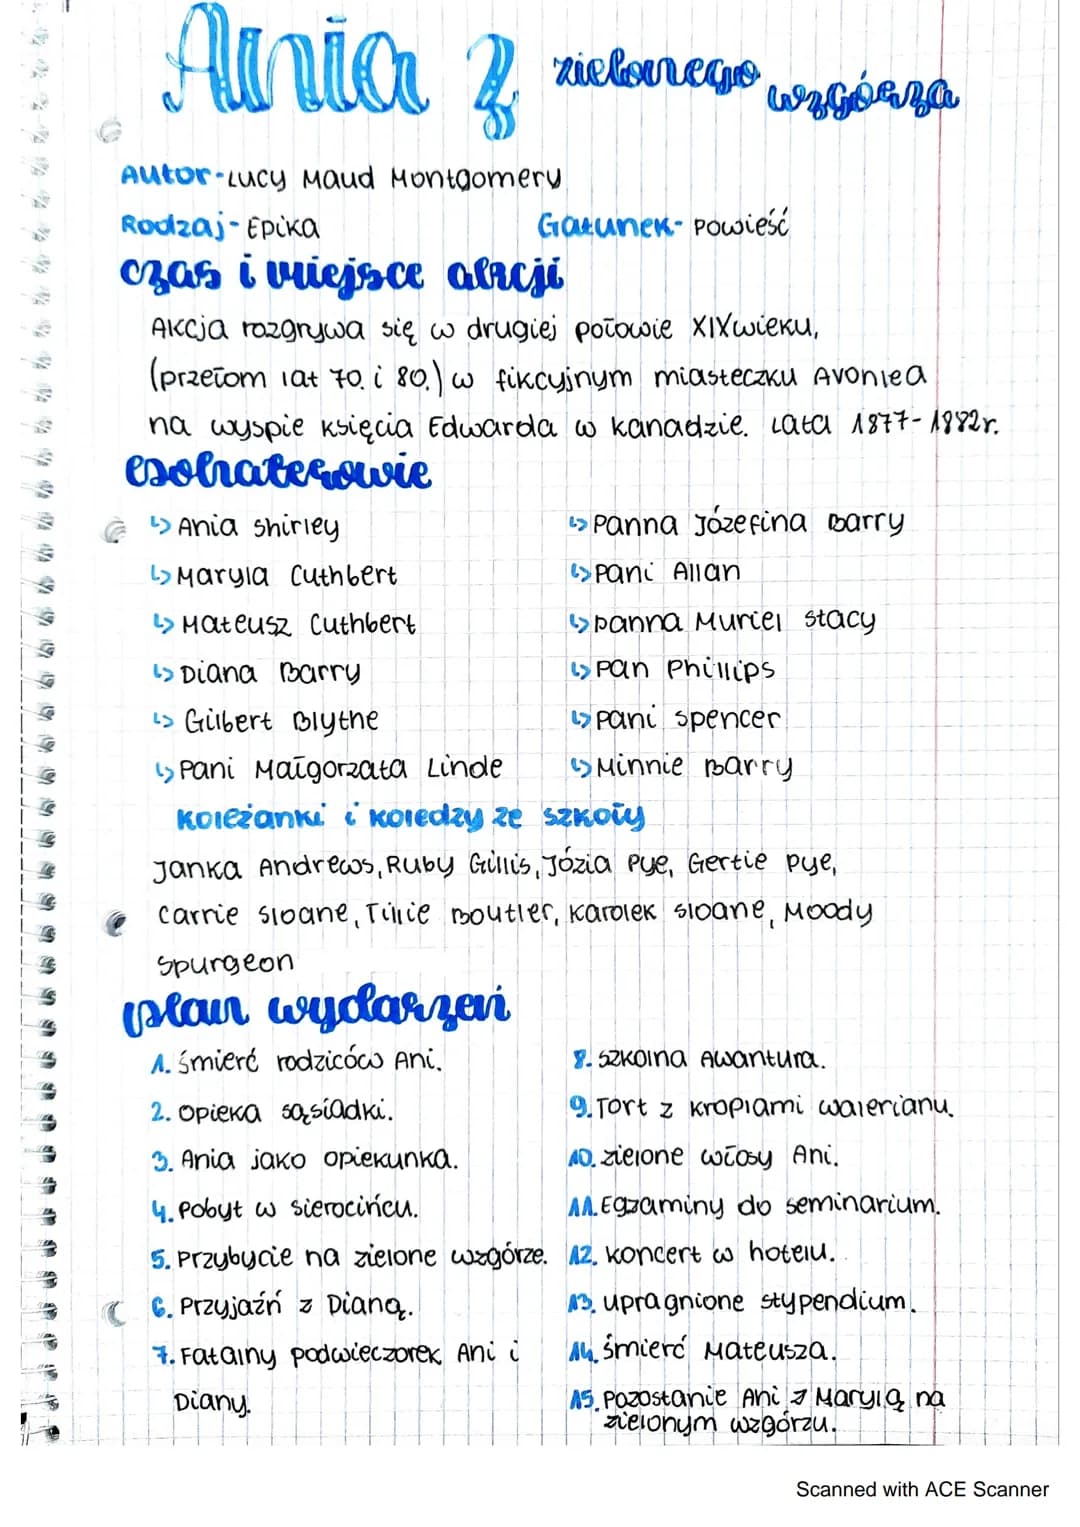 Ania z zielonego wzgórza
Autor-Lucy Maud Montgomery
Rodzaj-Epika
Gatunek-powieść
czas i miejsce akcji
Akcja rozgrywa się w drugiej połowie XIXwieku,
(przełom lat 70. i 80.) w fikcyjnym miasteczku Avonlea
na wyspie księcia Edwarda w kanadzie. Lata 1877-1882r.
Bohaterowie
↳ Ania Shirley
↳ Maryla Cuthbert
↳ Mateusz Cuthbert
↳ Diana Barry
↳ Gilbert Blythe
↳ Pani Małgorzata Linde
↳ Panna Józefina Barry
↳ Pani Allan
↳ panna Muriel Stacy
↳ Pan Phillips
↳ pani spencer
↳ Minnie Barry
koleżanki i koledzy ze szkoły
Janka Andrews, Ruby Gillis, Józia Pye, Gertie Pye,
Carrie Sloane, Tillie Boutler, Karolek Sloane, Moody
Spurgeon
plan wydarzeń
1. śmierć rodziców Ani.
2. opieka sąsiadki.
3. Ania jako opiekunka.
4. pobyt w sierocińcu.
5. Przybycie na zielone wzgórze.
6. Przyjaźń z Dianą.
7. Fatalny podwieczorek Ani i
Diany.
8. szkolna Awantura.
9. Tort z kroplami walerianu.
10. zielone włosy Ani.
11. Egzaminy do seminarium.
12. koncert w hotelu.
13. upragnione stypendium.
14. śmierć Mateusza.
15. Pozostanie Ani z Marylą na
zielonym wzgórzu.
Scanned with ACE Scanner